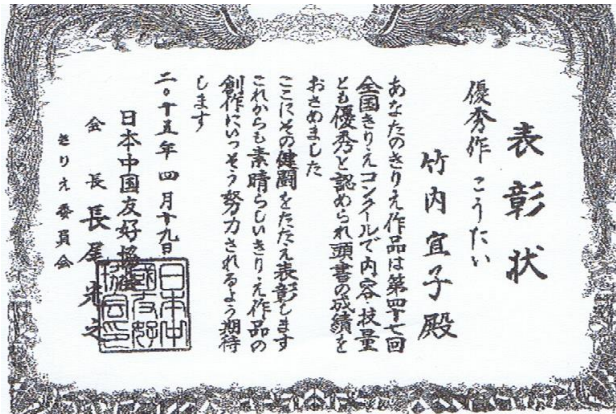 表彰状
優秀作 こうたい
竹内宜子殿
あなたのきりえ作品は第四十七回
全国きりえコンクールで内容・技量
とも優秀と認められ頭書の成績を
おさめました
ここにその健闘をたたえ表彰します
これからも素晴らしいきりえ作品の
創作にいっそう努力されるよう期待
します
二〇十五年四月十九日
日本中国友好協会
会長 長尾光之
きりえ委員会
日本中
国友好
協会印